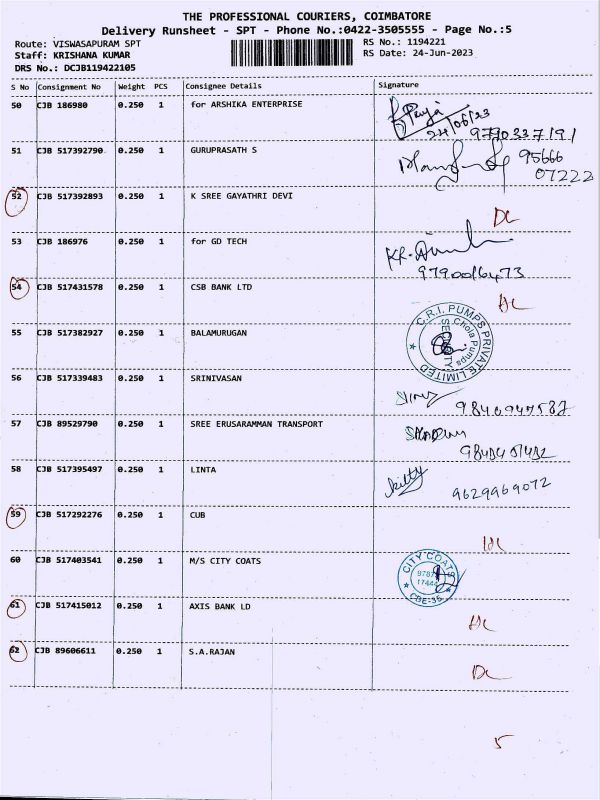 THE PROFESSIONAL COURIERS, COIMBATORE
Delivery Runsheet - SPT - Phone No.:0422-3505555 - Page No.:5
Route: VISWASAPURAM SPT RS No.: 1194221
Staff: KRISHANA KUMAR RS Date: 24-Jun-2023
DRS No.: DCJB119422105
S No Consignment No Weight PCS Consignee Details Signature
50 CJB 186980 0.250 1 for ARSHIKA ENTERPRISE Priya
24/06/23
9790337191
51 CJB 517392790 0.250 1 GURUPRASATH S 95666
07222
52 CJB 517392893 0.250 1 K SREE GAYATHRI DEVI DL
53 CJB 186976 0.250 1 for GD TECH
9790016473
54 CJB 517431578 0.250 1 CSB BANK LTD
55 CJB 517382927 0.250 1 BALAMURUGAN C.R.I. PUMPS PRIVATE LIMITED
Chola Pumps
SECURITY
56 CJB 517339483 0.250 1 SRINIVASAN
57 CJB 89529790 0.250 1 SREE ERUSARAMMAN TRANSPORT
58 CJB 517395497 0.250 1 LINTA kitty
9629969072
59 CJB 517292276 0.250 1 CUB
60 CJB 517403541 0.250 1 M/S CITY COATS CITY COATS
CBE-35
61 CJB 517415012 0.250 1 AXIS BANK LD
62 CJB 89606611 0.250 1 S.A.RAJAN DL
5